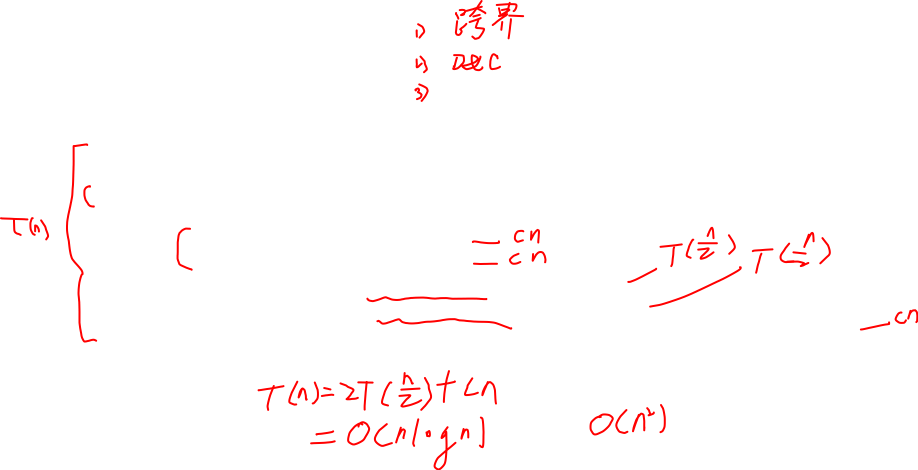 1) 跨界
2) D&C
3)
T(n)
C
C
cn
cn
T(n/2) T(n/2)
cn
T(n)=2T(n/2)+cn
=O(nlogn)
O(n²)